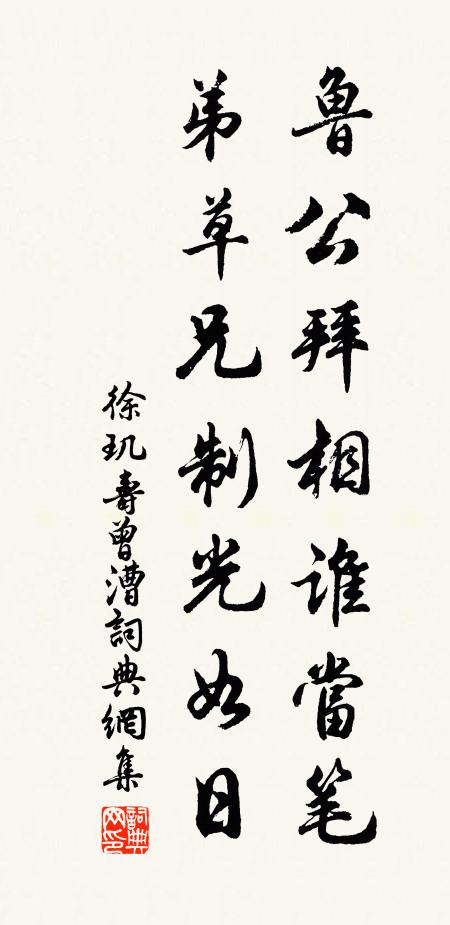 鲁公拜相谁當笔
弟草兄制光如日
徐玑壽曾漕詞典網集
詞典网印